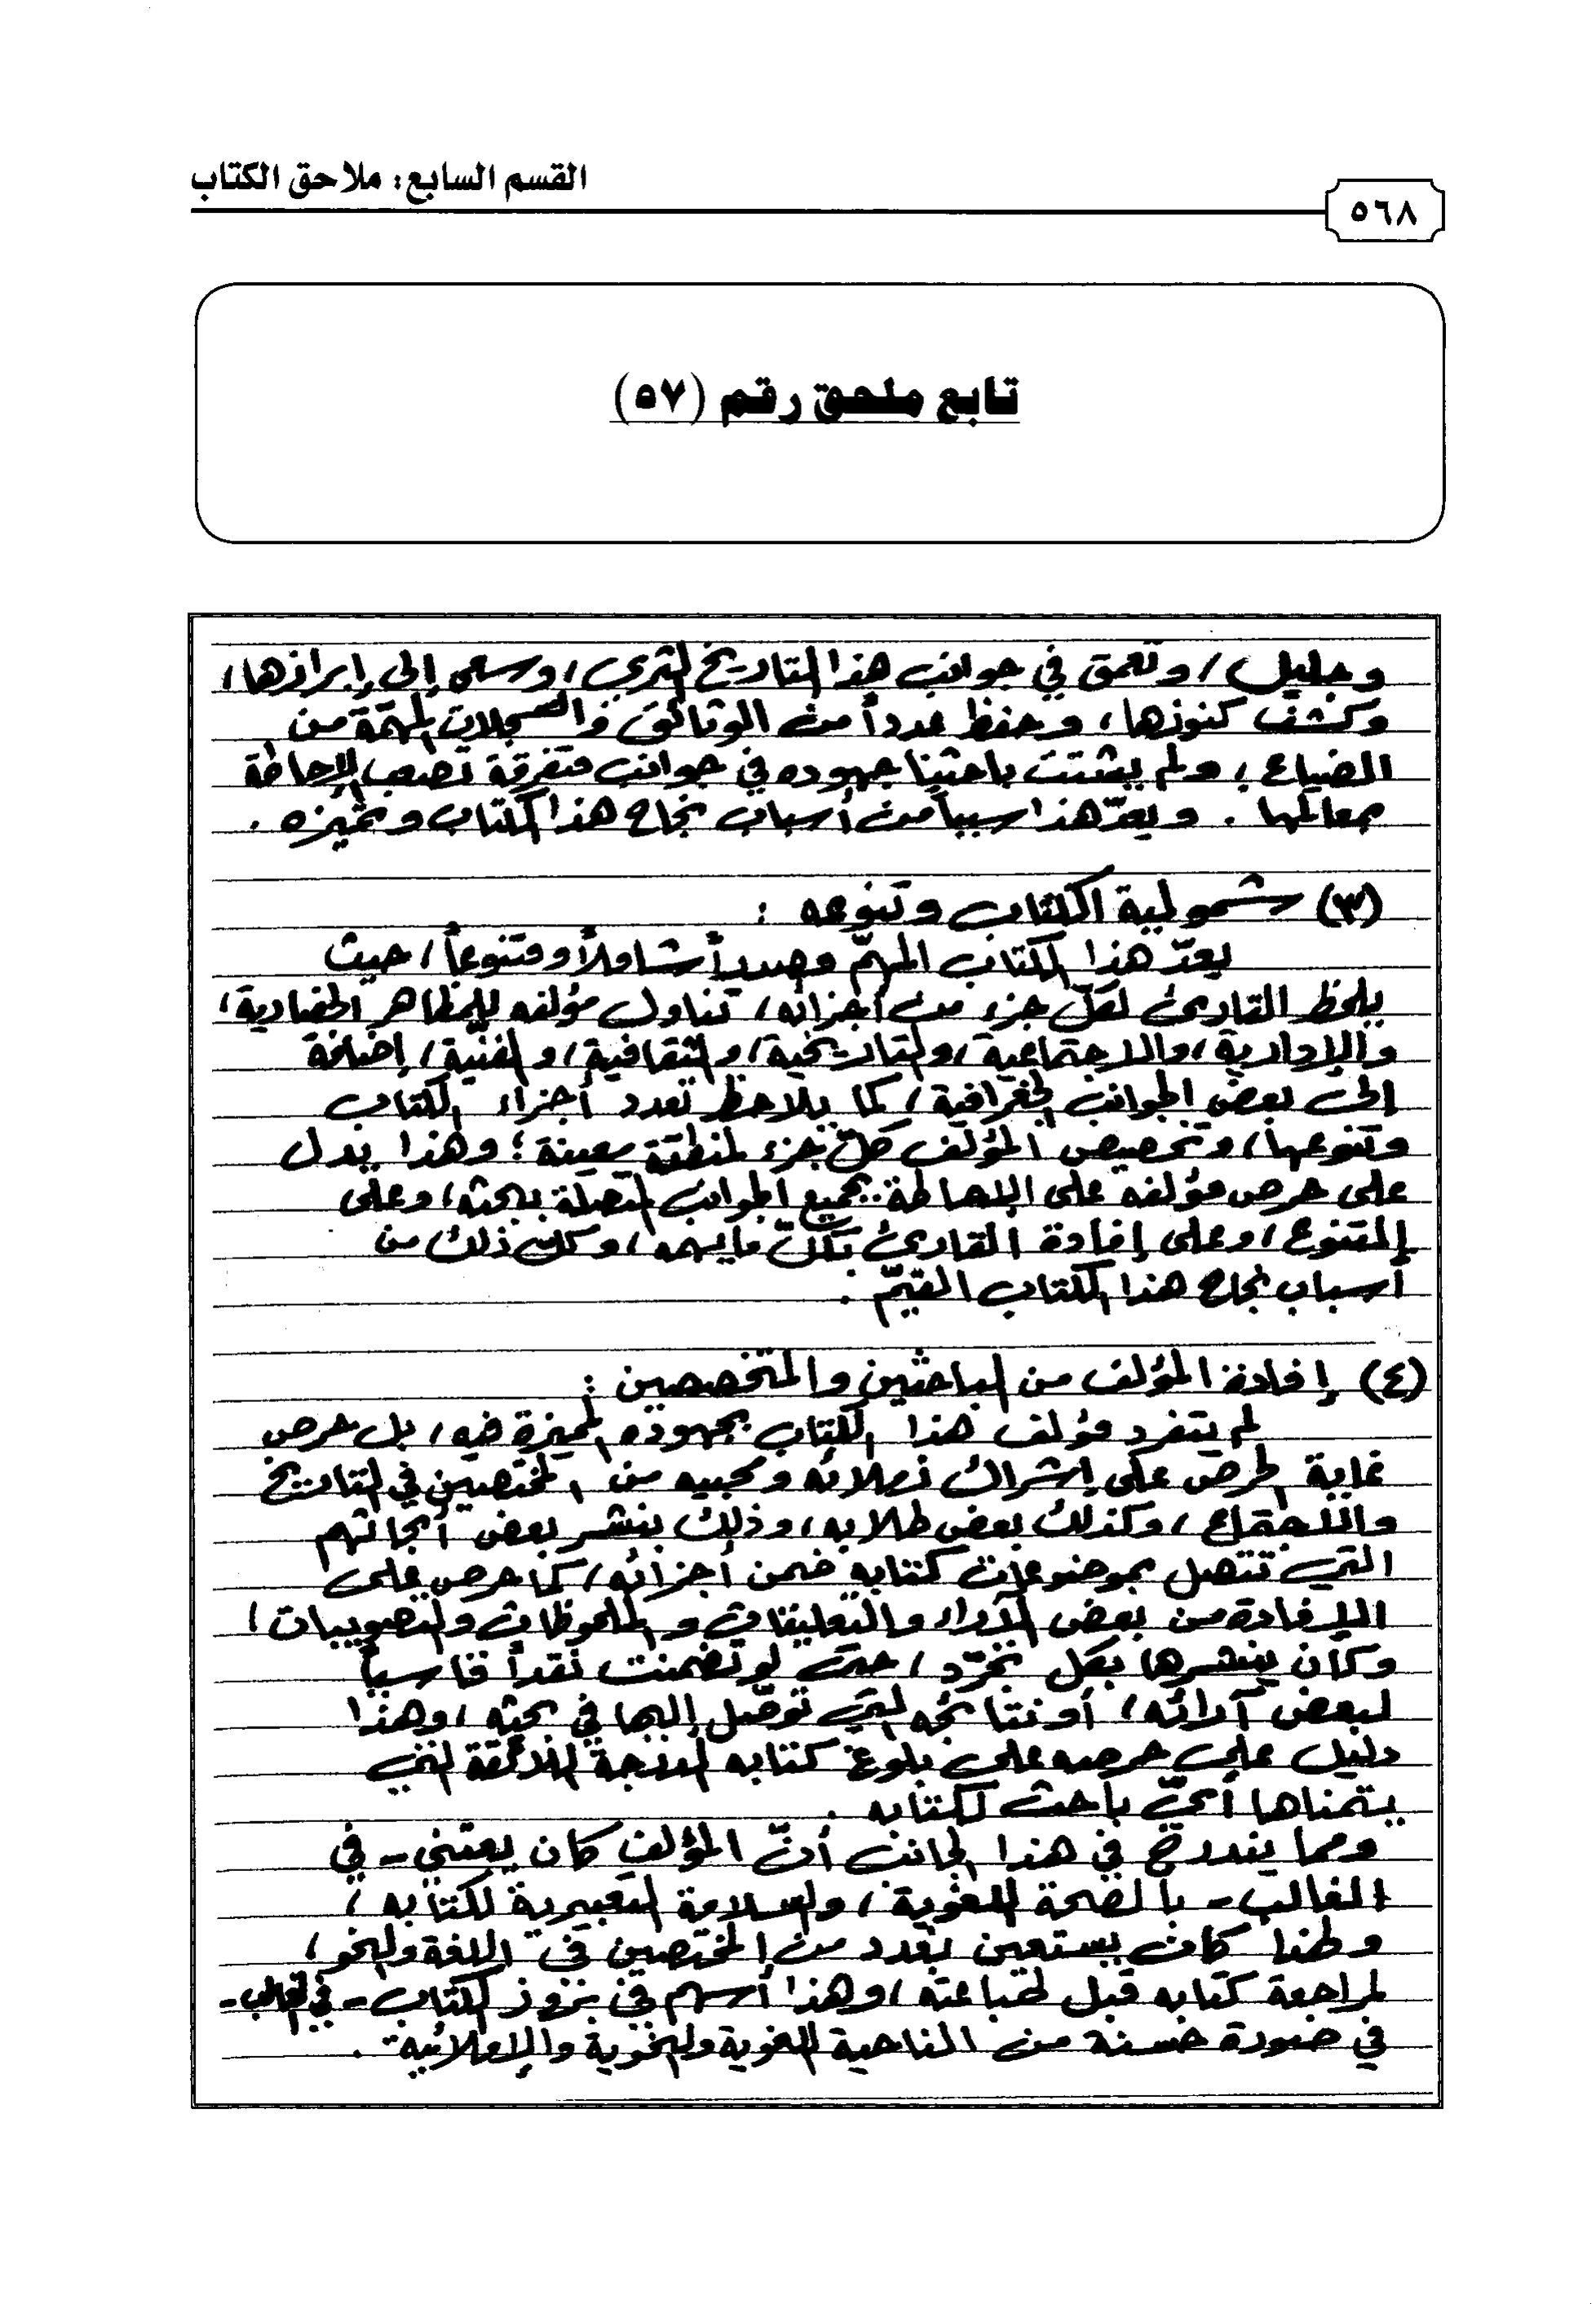 القسم السابع: ملاحق الكتاب
٥٦٨
تابع ملحق رقم (٥٧)
وجليل، وتعمق في جوانب هذا التاريخ الثري، وسعى إلى إبرازها،
وكشف كنوزها، وحفظ عدداً من الوثائق والسجلات المهمّة من
الضياع، ولم يشتت باحثنا جهوده في جوانب متفرقة تصعب الإحاطة
بمعالمها. ويعدّ هذا سبباً من أسباب نجاح هذا الكتاب وتميّزه.
(٣) شمولية الكتاب وتنوعه:
يعدّ هذا الكتاب المهمّ مصدراً شاملاً ومتنوعاً، حيث
يلحظ القارئ لكلّ جزء من أجزائه، تناول مؤلفه للمظاهر الحضارية،
والإدارية، والاجتماعية، والتاريخية، والثقافية، والفنية، إضافة
إلى بعض الجوانب الجغرافية، كما يلاحظ تعدد أجزاء الكتاب
وتنوعها، وتخصيص المؤلف كلّ جزء لمنطقة معينة؛ وهذا يدل
على حرص مؤلفه على الإحاطة بجميع الجوانب المتصلة ببحثه، وعلى
التنوع، وعلى إفادة القارئ بكلّ ما يهمه، وكل ذلك من
أسباب نجاح هذا الكتاب القيّم.
(٤) إفادة المؤلف من الباحثين والمتخصصين:
لم يتفرد مؤلف هذا الكتاب بجهوده المميزة فيه، بل حرص
غاية الحرص على إشراك زملائه ومحبيه من المختصين في التاريخ
والاجتماع، وكذلك بعض طلابه، وذلك بنشر بعض أبحاثهم
التي تتصل بموضوعات كتابه ضمن أجزائه، كما حرص على
الإفادة من بعض الآراء والتعليقات والملحوظات والتصويبات،
وكان ينشرها بكل تجرّد، حتى لو تضمنت نقداً قاسياً
لبعض آرائه، أو نتائجه التي توصّل إليها في بحثه، وهذا
دليل على حرصه على بلوغ كتابه الدرجة اللائقة التي
يتمناها أيّ باحث لكتابه.
ومما يندرج في هذا الجانب أنّ المؤلف كان يعتني - في
الغالب - بالصحة اللغوية، والسلامة التعبيرية لكتابه،
ولهذا كان يستعين بعدد من المختصين في اللغة والنحو،
لمراجعة كتابه قبل طباعته، وهذا أسهم في بروز الكتاب - في الغالب -
في صورة حسنة من الناحية اللغوية والنحوية والإملائية.